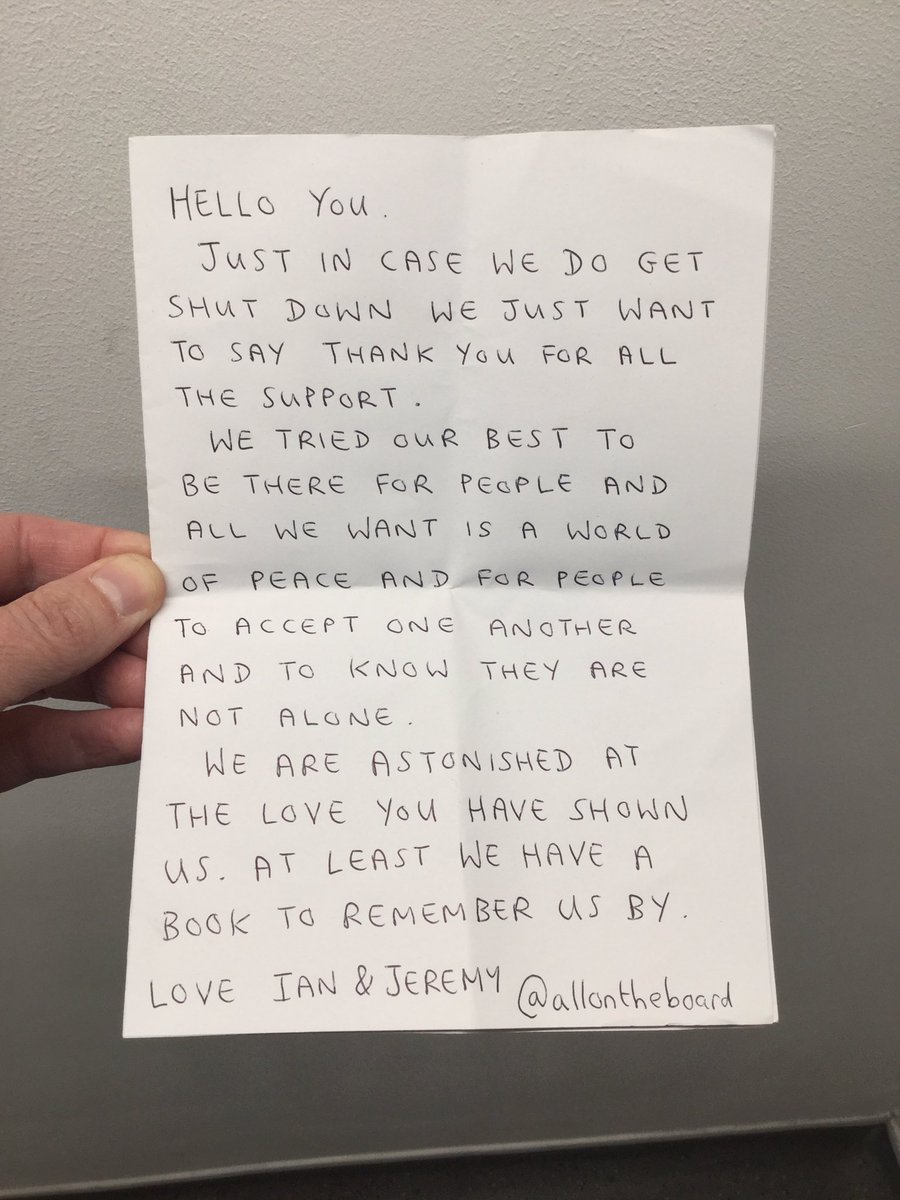 HELLO YOU.
JUST IN CASE WE DO GET
SHUT DOWN WE JUST WANT
TO SAY THANK YOU FOR ALL
THE SUPPORT.
WE TRIED OUR BEST TO
BE THERE FOR PEOPLE AND
ALL WE WANT IS A WORLD
OF PEACE AND FOR PEOPLE
TO ACCEPT ONE ANOTHER
AND TO KNOW THEY ARE
NOT ALONE.
WE ARE ASTONISHED AT
THE LOVE YOU HAVE SHOWN
US. AT LEAST WE HAVE A
BOOK TO REMEMBER US BY.
LOVE IAN & JEREMY @allontheboard